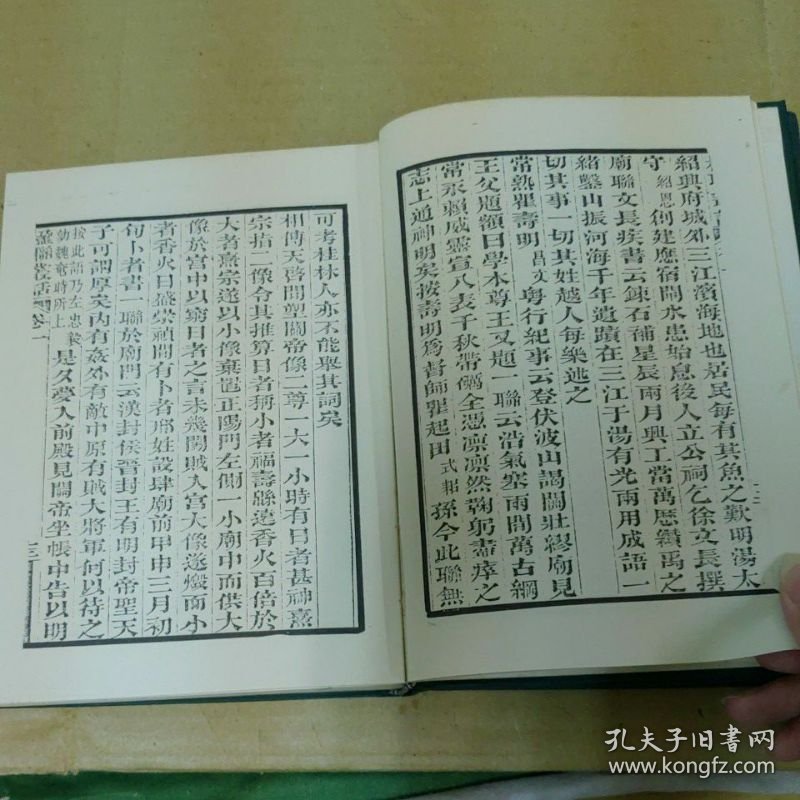 紹興府城外三江濱海地也居民每有其魚之歎明湯太
守紹恩創建應宿閘水患始息後人立公祠乞徐文長撰
廟聯文長疾書云鍊石補星辰兩月興工當萬歷纘禹之
緒鑿山振河海千年遺蹟在三江于湯有光兩用成語一
切其事一切其姓越人每樂述之
常熟瞿壽明昌文粵行紀事云登伏波山謁關壯繆廟見
王父題額曰學本尊王又題一聯云浩氣塞兩間萬古綱
常永賴威靈宣八表千秋帶礪全憑凛凛然鞠躬盡瘁之
志上通神明矣按壽明為督師瞿起田式耜孫今此聯無
可考桂林人亦不能舉其詞矣
相傳天啓間塑關帝像二尊一大一小時有日者甚神熹
宗指二像令其推算日者稱小者福壽緜遠香火百倍於
大者熹宗遂以小像棄置正陽門左側一小廟中而供大
像於宮中以窮日者之言未幾闖賊入宮大像遂燬而小
者香火日盛崇禎間有卜者邢姓設肆廟前甲申三月初
旬卜者書一聯於廟門云漢封侯晉封王有明封帝聖天
子可謂厚矣內有姦外有敵中原有賊大將軍何以待之
按此語乃左忠毅劾魏奄時所上是夕夢入前殿見關帝坐帳中告以明
楹聯叢話卷一 十三
孔夫子旧书网
www.kongfz.com